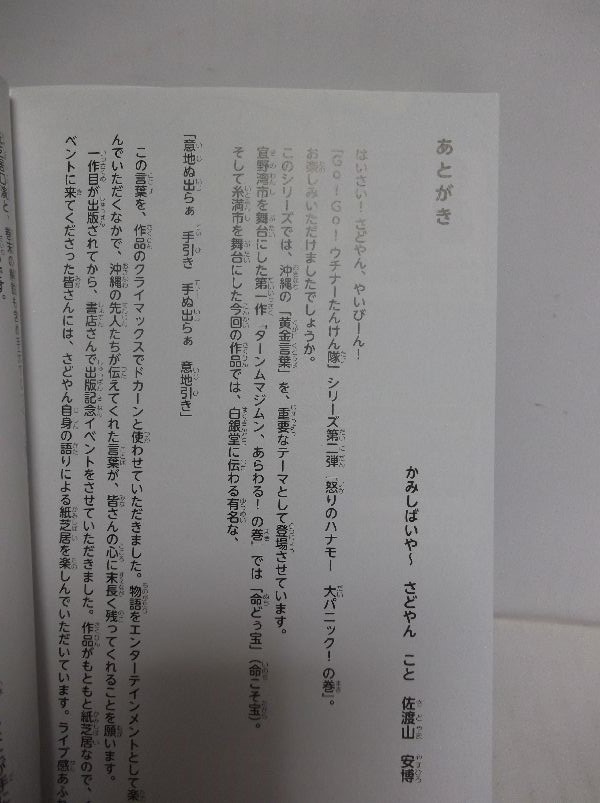 あとがき
かみしばいや〜 さどやん こと 佐渡山 安博
はいさい！さどやん、やいびーん！
「Ｇｏ！Ｇｏ！ウチナーたんけん隊」シリーズ第二弾『怒りのハナモー 大パニック！の巻』。
お楽しみいただけましたでしょうか。
このシリーズでは、沖縄の「黄金言葉」を、重要なテーマとして登場させています。
宜野湾市を舞台にした第一作『ターンムマジムン、あらわる！の巻』では「命どぅ宝」（命こそ宝）。
そして糸満市を舞台にした今回の作品では、白銀堂に伝わる有名な、
「意地ぬ出らぁ 手引き 手ぬ出らぁ 意地引き」
この言葉を、作品のクライマックスでドカーンと使わせていただきました。物語をエンターテインメントとして楽
んでいただくなかで、沖縄の先人たちが伝えてくれた言葉が、皆さんの心に末長く残ってくれることを願います。
一作目が出版されてから、書店さんで出版記念イベントをさせていただきました。作品がもともと紙芝居なので、
ベントに来てくださった皆さんには、さどやん自身の語りによる紙芝居を楽しんでいただいています。ライブ感あふ